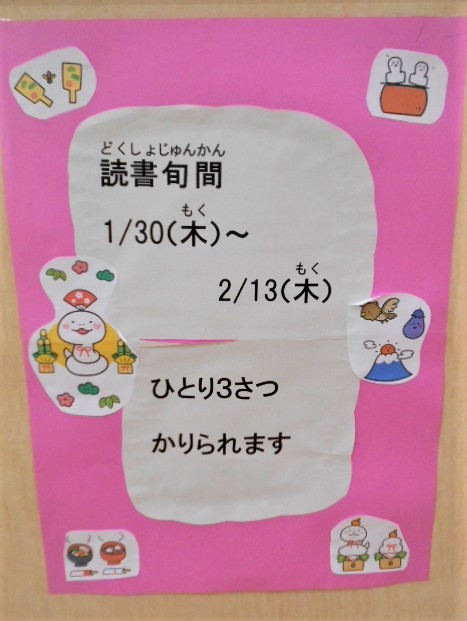 どくしょじゅんかん
読書旬間
もく
1/30(木)～
もく
2/13(木)
ひとり3さつ
かりられます